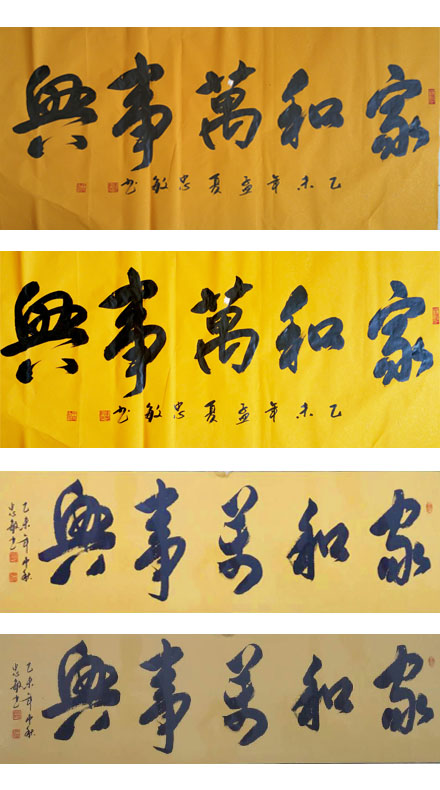 家和萬事興
乙未年孟夏忠敏书
家和萬事興
乙未年孟夏忠敏书
家和万事興
乙未年中秋
忠敏书
家和万事興
乙未年中秋
忠敏书